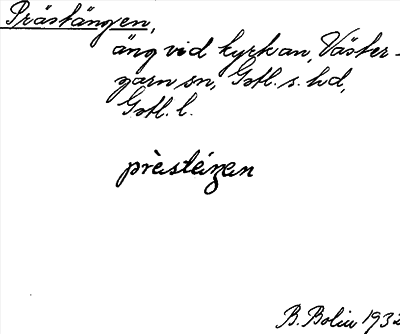 Prästängen,
äng vid kyrkan, Väster-
garn sn, Gotl. s. hd,
Gotl. l.
prèstéiŋen
B. Bolin 1932